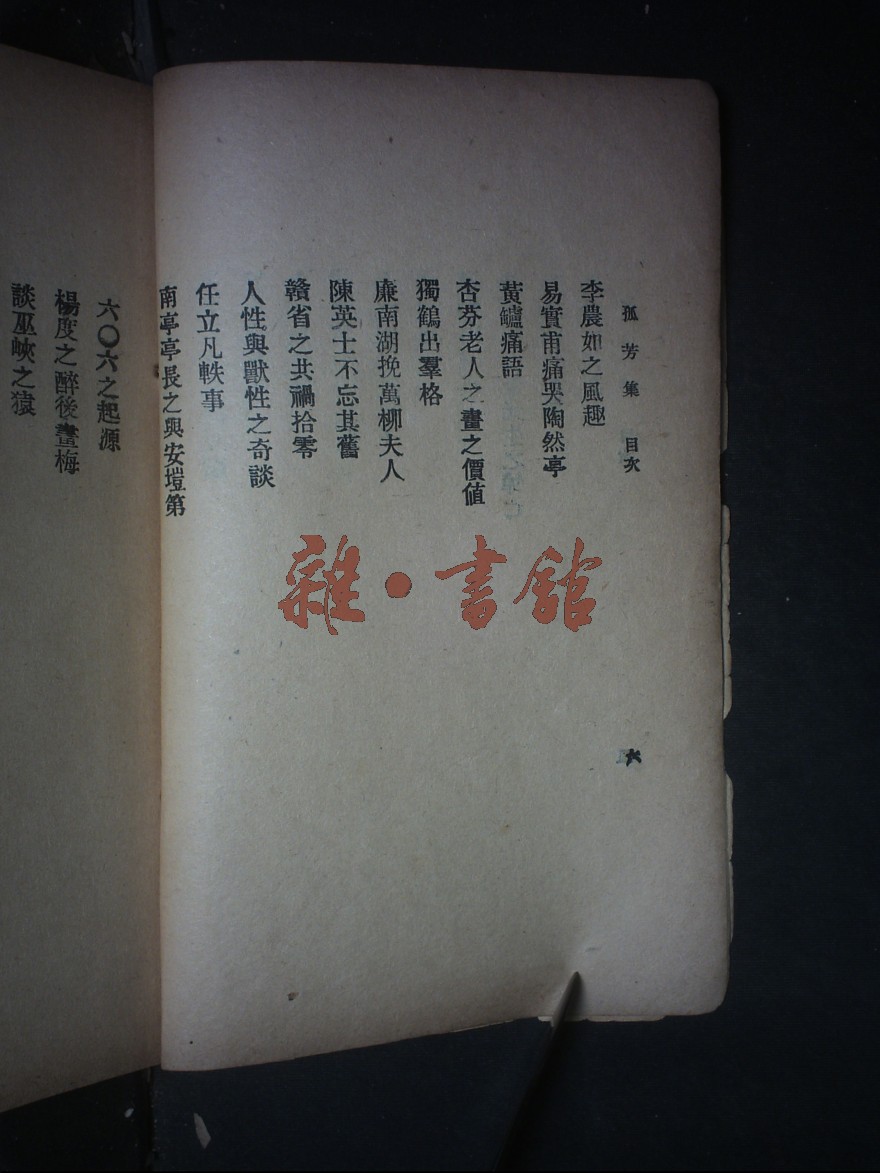 孤芳集 目次
六
李農如之風趣
易實甫痛哭陶然亭
黃鱸痛語
杏芬老人之畫之價值
獨鶴出羣格
廉南湖挽萬柳夫人
陳英士不忘其舊
贛省之共禍拾零
人性與獸性之奇談
任立凡軼事
南亭亭長之與安塏第
六〇六之起源
楊度之醉後畫梅
談巫峽之猿
雜·書館